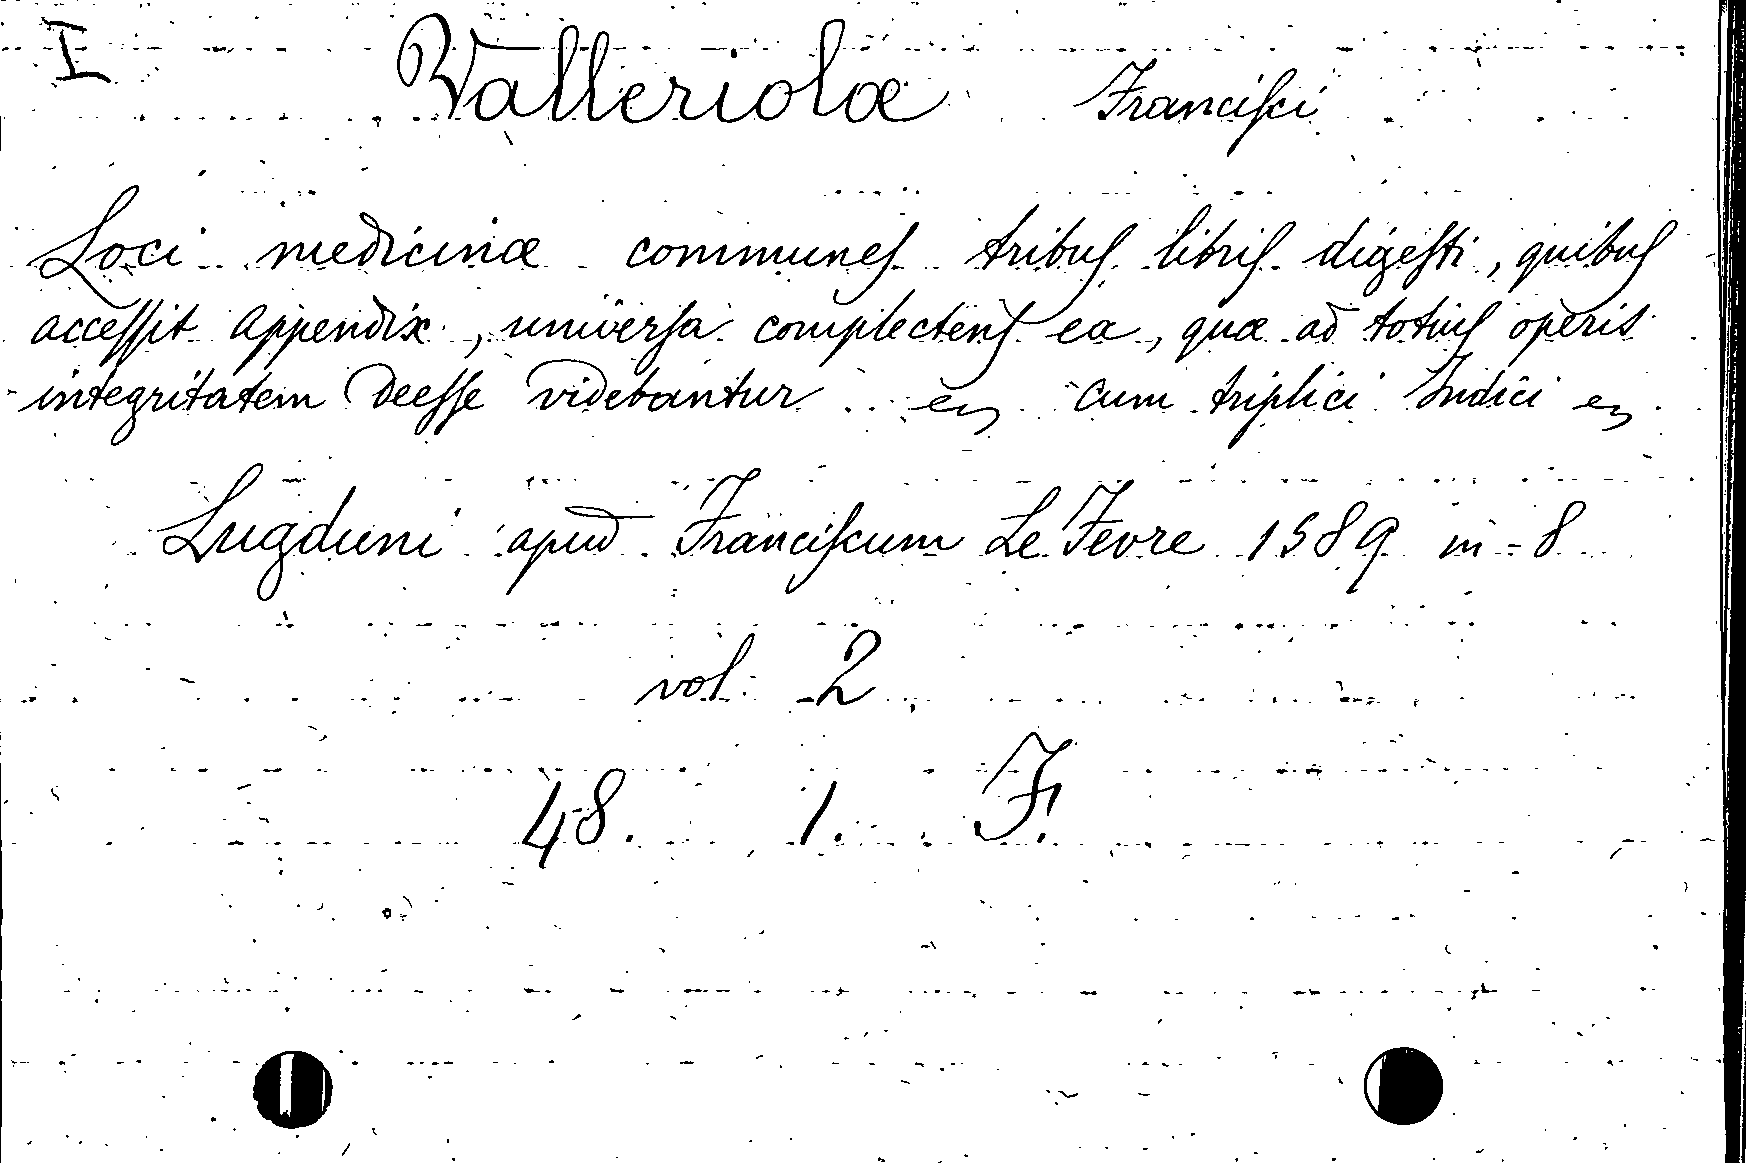 I Valleriolæ Franciſci
Loci medicinæ communeſ tribuſ libriſ digeſti, quibuſ
acceſſit appendix, univerſa complectenſ ea, quæ ad totiuſ operis
integritatem deeſſe videbantur cum triplici Indici
Lugduni apud Franciſcum Le Fevre 1589 in-8
vol. 2
48. 1. F.